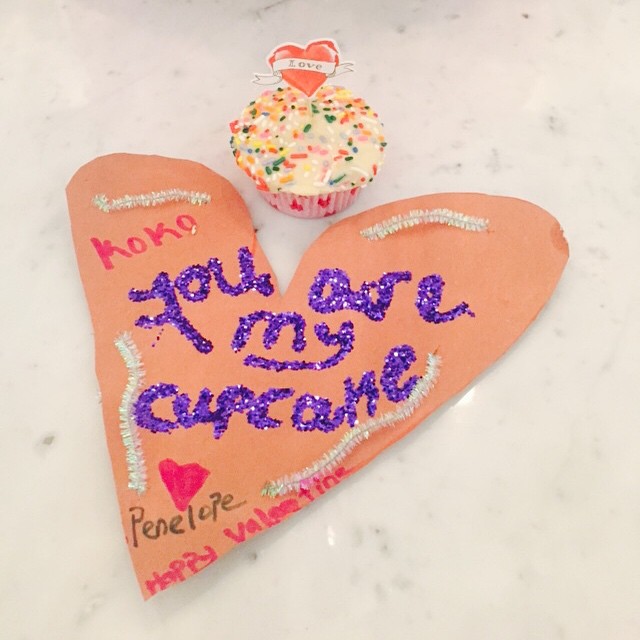 Love
KOKO
you are
my
cupcake
Penelope
Happy Valentine